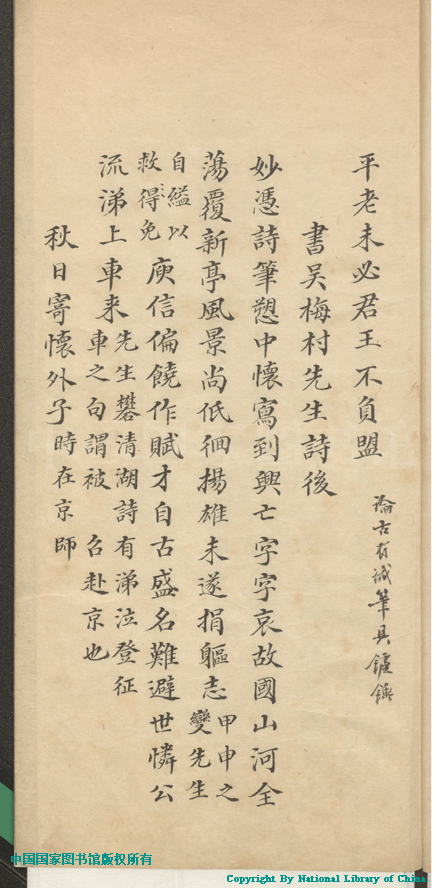 平老未必君王不負盟
論古有識筆具鑪錘
書吴梅村先生詩後
妙憑詩筆愬中懷寫到興亡字字哀故國山河全
蕩覆新亭風景尚低徊揚雄未遂捐軀志甲申之
變先生
自縊以
救得免庾信偏饒作賦才自古盛名難避世憐公
流涕上車来先生礬清湖詩有涕泣登征
車之句謂被 召赴京也
秋日寄懷外子時在京師
中国国家图书馆版权所有
Copyright By National Library of China